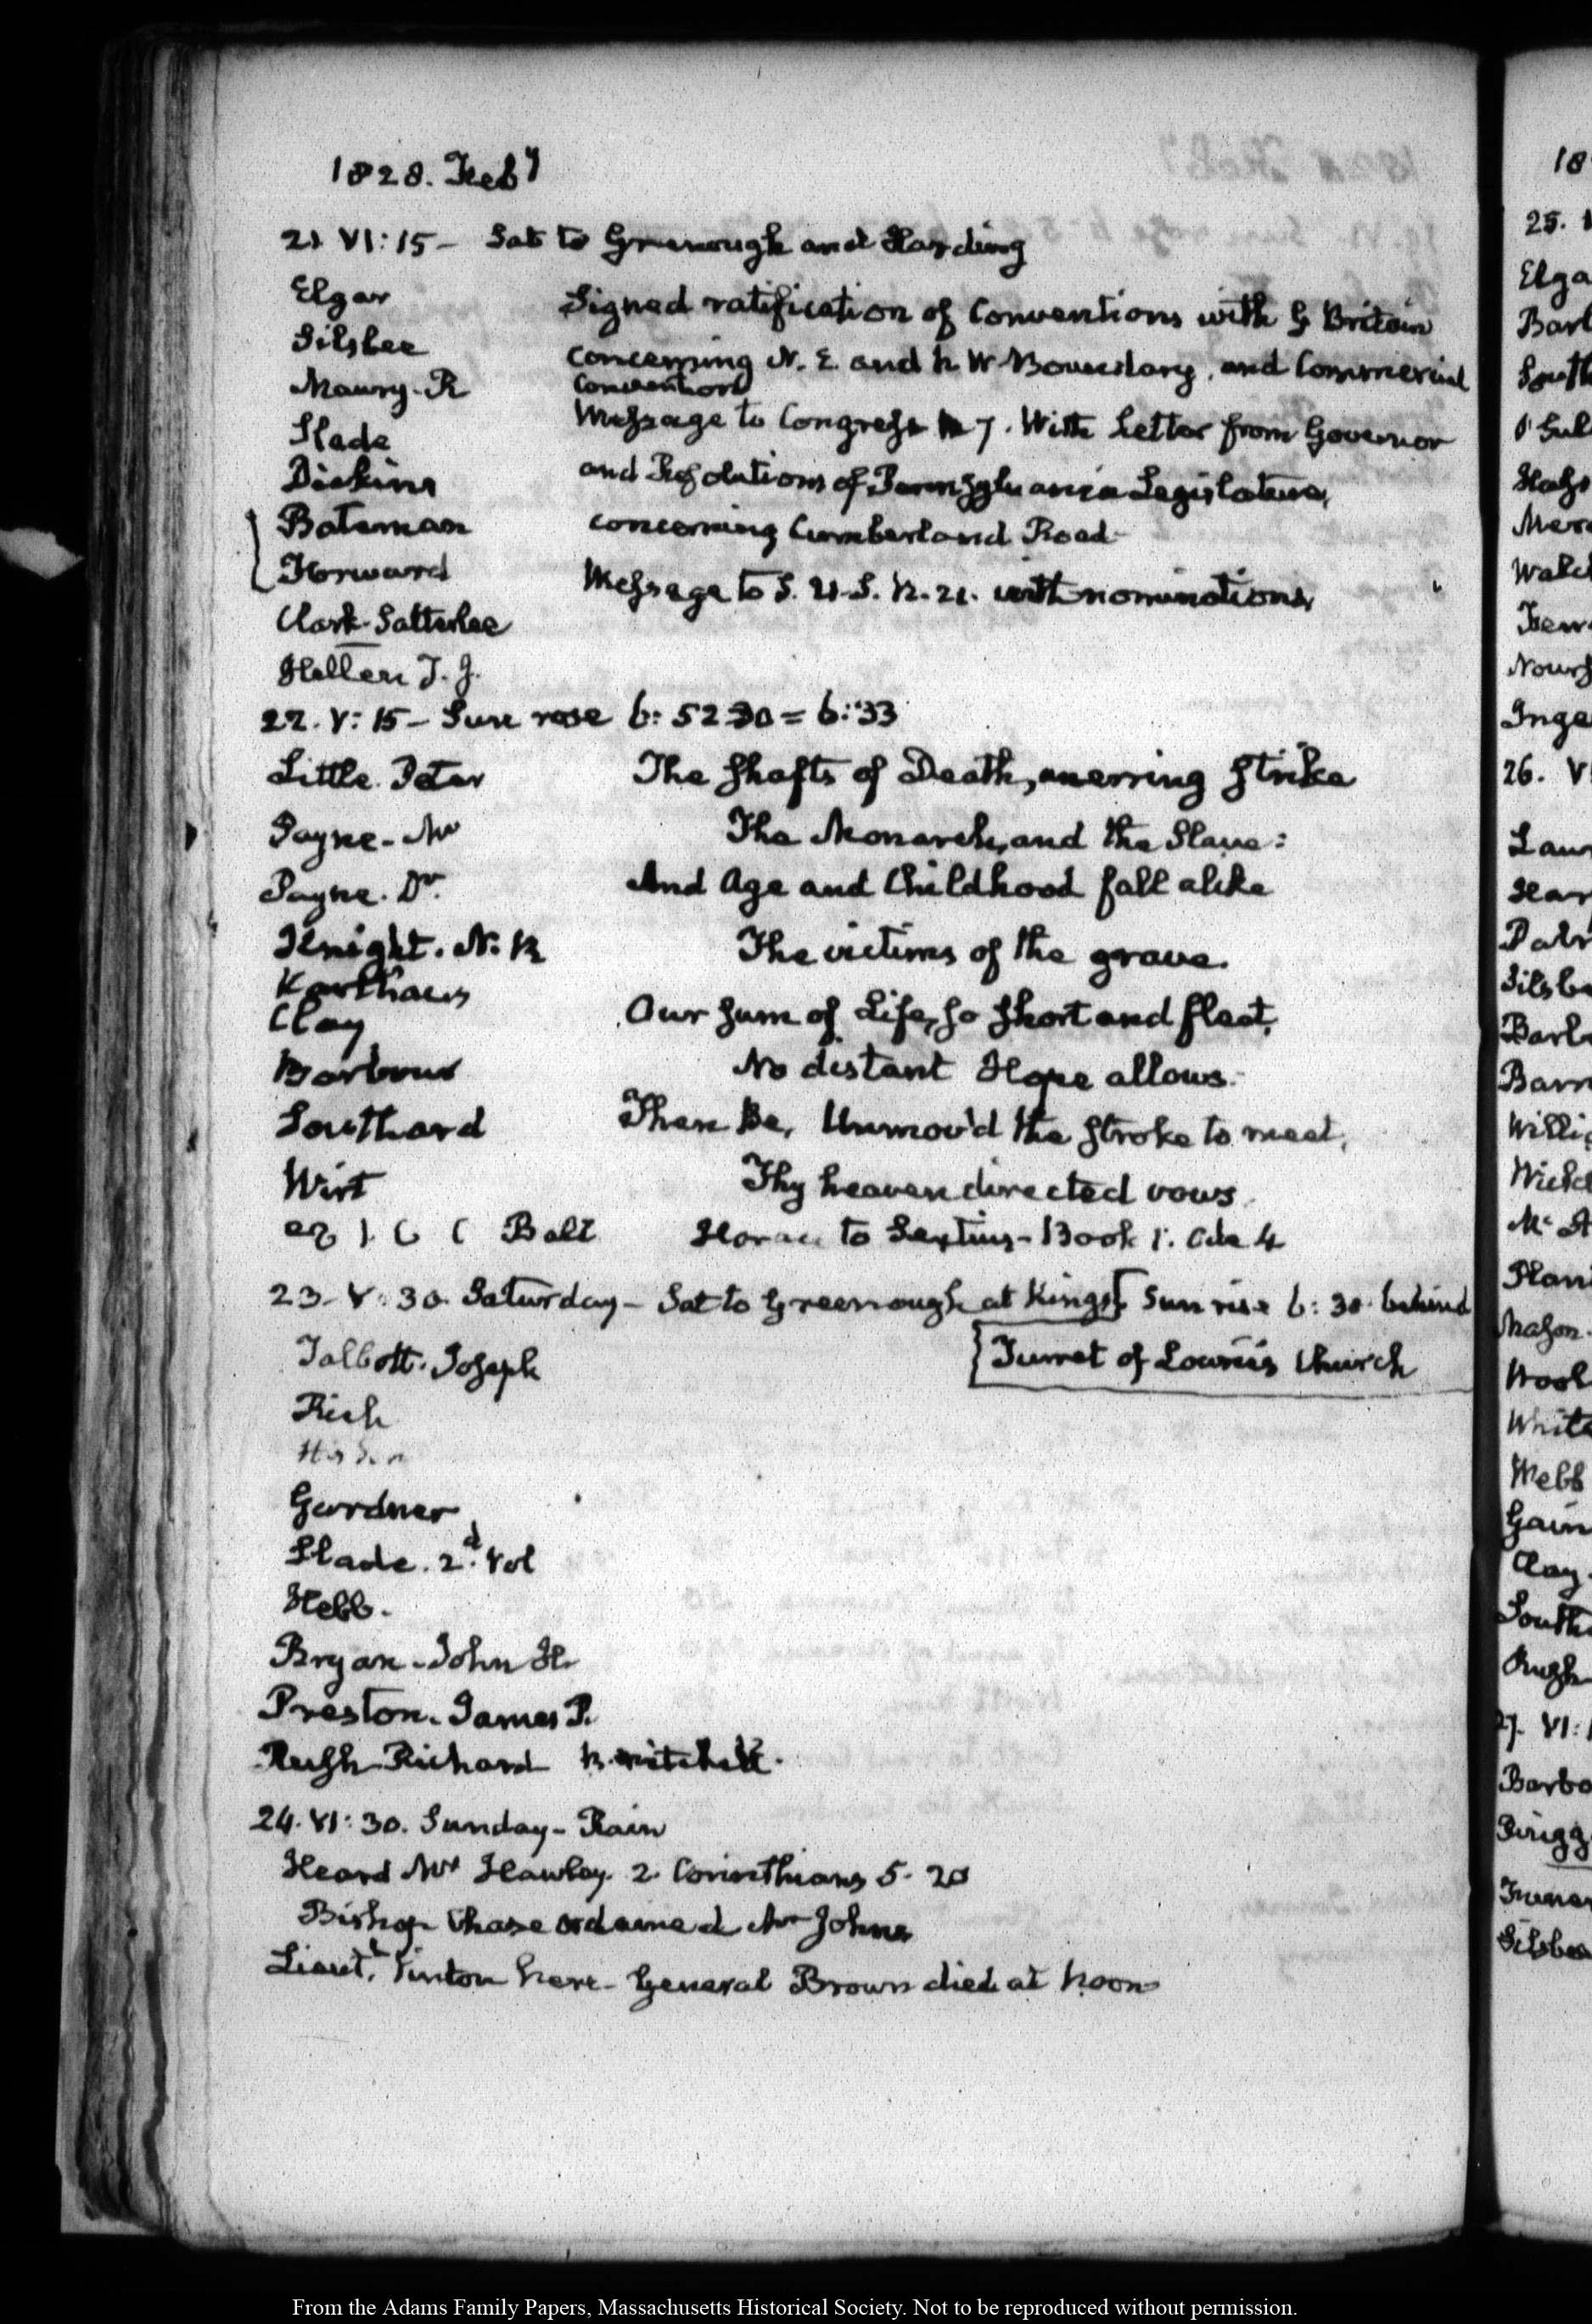 1828. Feby
21 VI:15 – Sat to Greenough and Harding
Elgar
Silsbee
Maury. R
Slade
Dickins
Bateman
Forward
Clark. Satterlee
Hellen J. J.
Signed ratification of Conventions with G Britain
concerning N. E. and N W Boundary, and Commercial
Convention
Message to Congress N 7. With Letter from Governor
and Resolutions of Pennsylvania Legislature,
concerning Cumberland Road
Message to S. U.S. N. 21. with nominations
22. V:15 – Sun rose 6:52 30 = 6:33
Little. Peter
Payne. Mr
Payne. Dr.
Knight. N. R
Karthaus
Clay
Barbour
Southard
Wirt
Ball
The shafts of Death, unerring strike
The Monarch, and the Slave:
And Age and Childhood fall alike
The victims of the grave.
Our sum of Life, so short and fleet,
No distant Hope allows.
Then Be, Unmov'd the stroke to meet,
Thy heaven directed vows.
Horace to Sextius – Book 1. Ode 4
23. V:30. Saturday – Sat to Greenough at Kings[ Sun rise 6:30 behind
Turret of Lowrie's Church
Talbott. Joseph
Rich
Gardner
Slade. 2d. Vol
Hebb.
Bryan. John H.
Preston. James P.
Rush Richard
24. VI:30. Sunday – Rain
Heard Mr Hawley. 2. Corinthians 5. 20
Bishop Chase ordained Mr Johns
Lieutt. Vinton here – General Brown died at Noon
18
25.
Elga
Barb
South
Inge
26. V
Silsbe
Barb
White
Webb
Gain
Clay
South
27. VI:1
Barbo
Silsbee
From the Adams Family Papers, Massachusetts Historical Society. Not to be reproduced without permission.